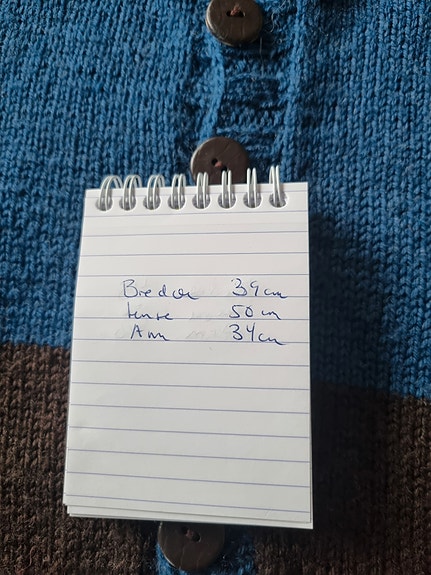 Bredde 39cm
lengde 50cm
Arm 34cm